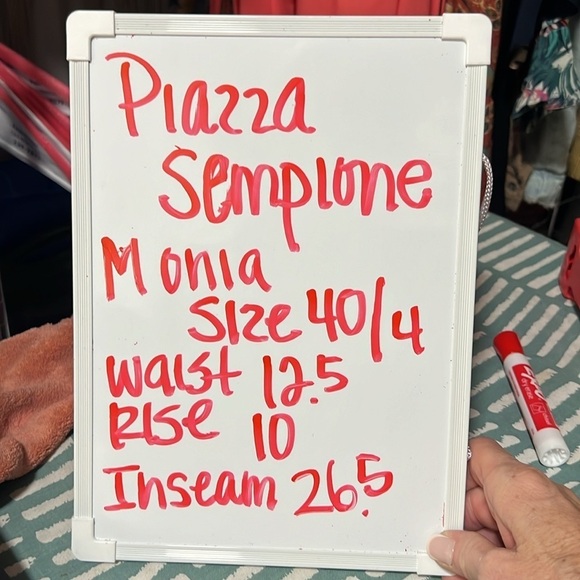 Piazza
Semplone
Monia
Size 40/4
Waist 12.5
Rise 10
Inseam 26.5